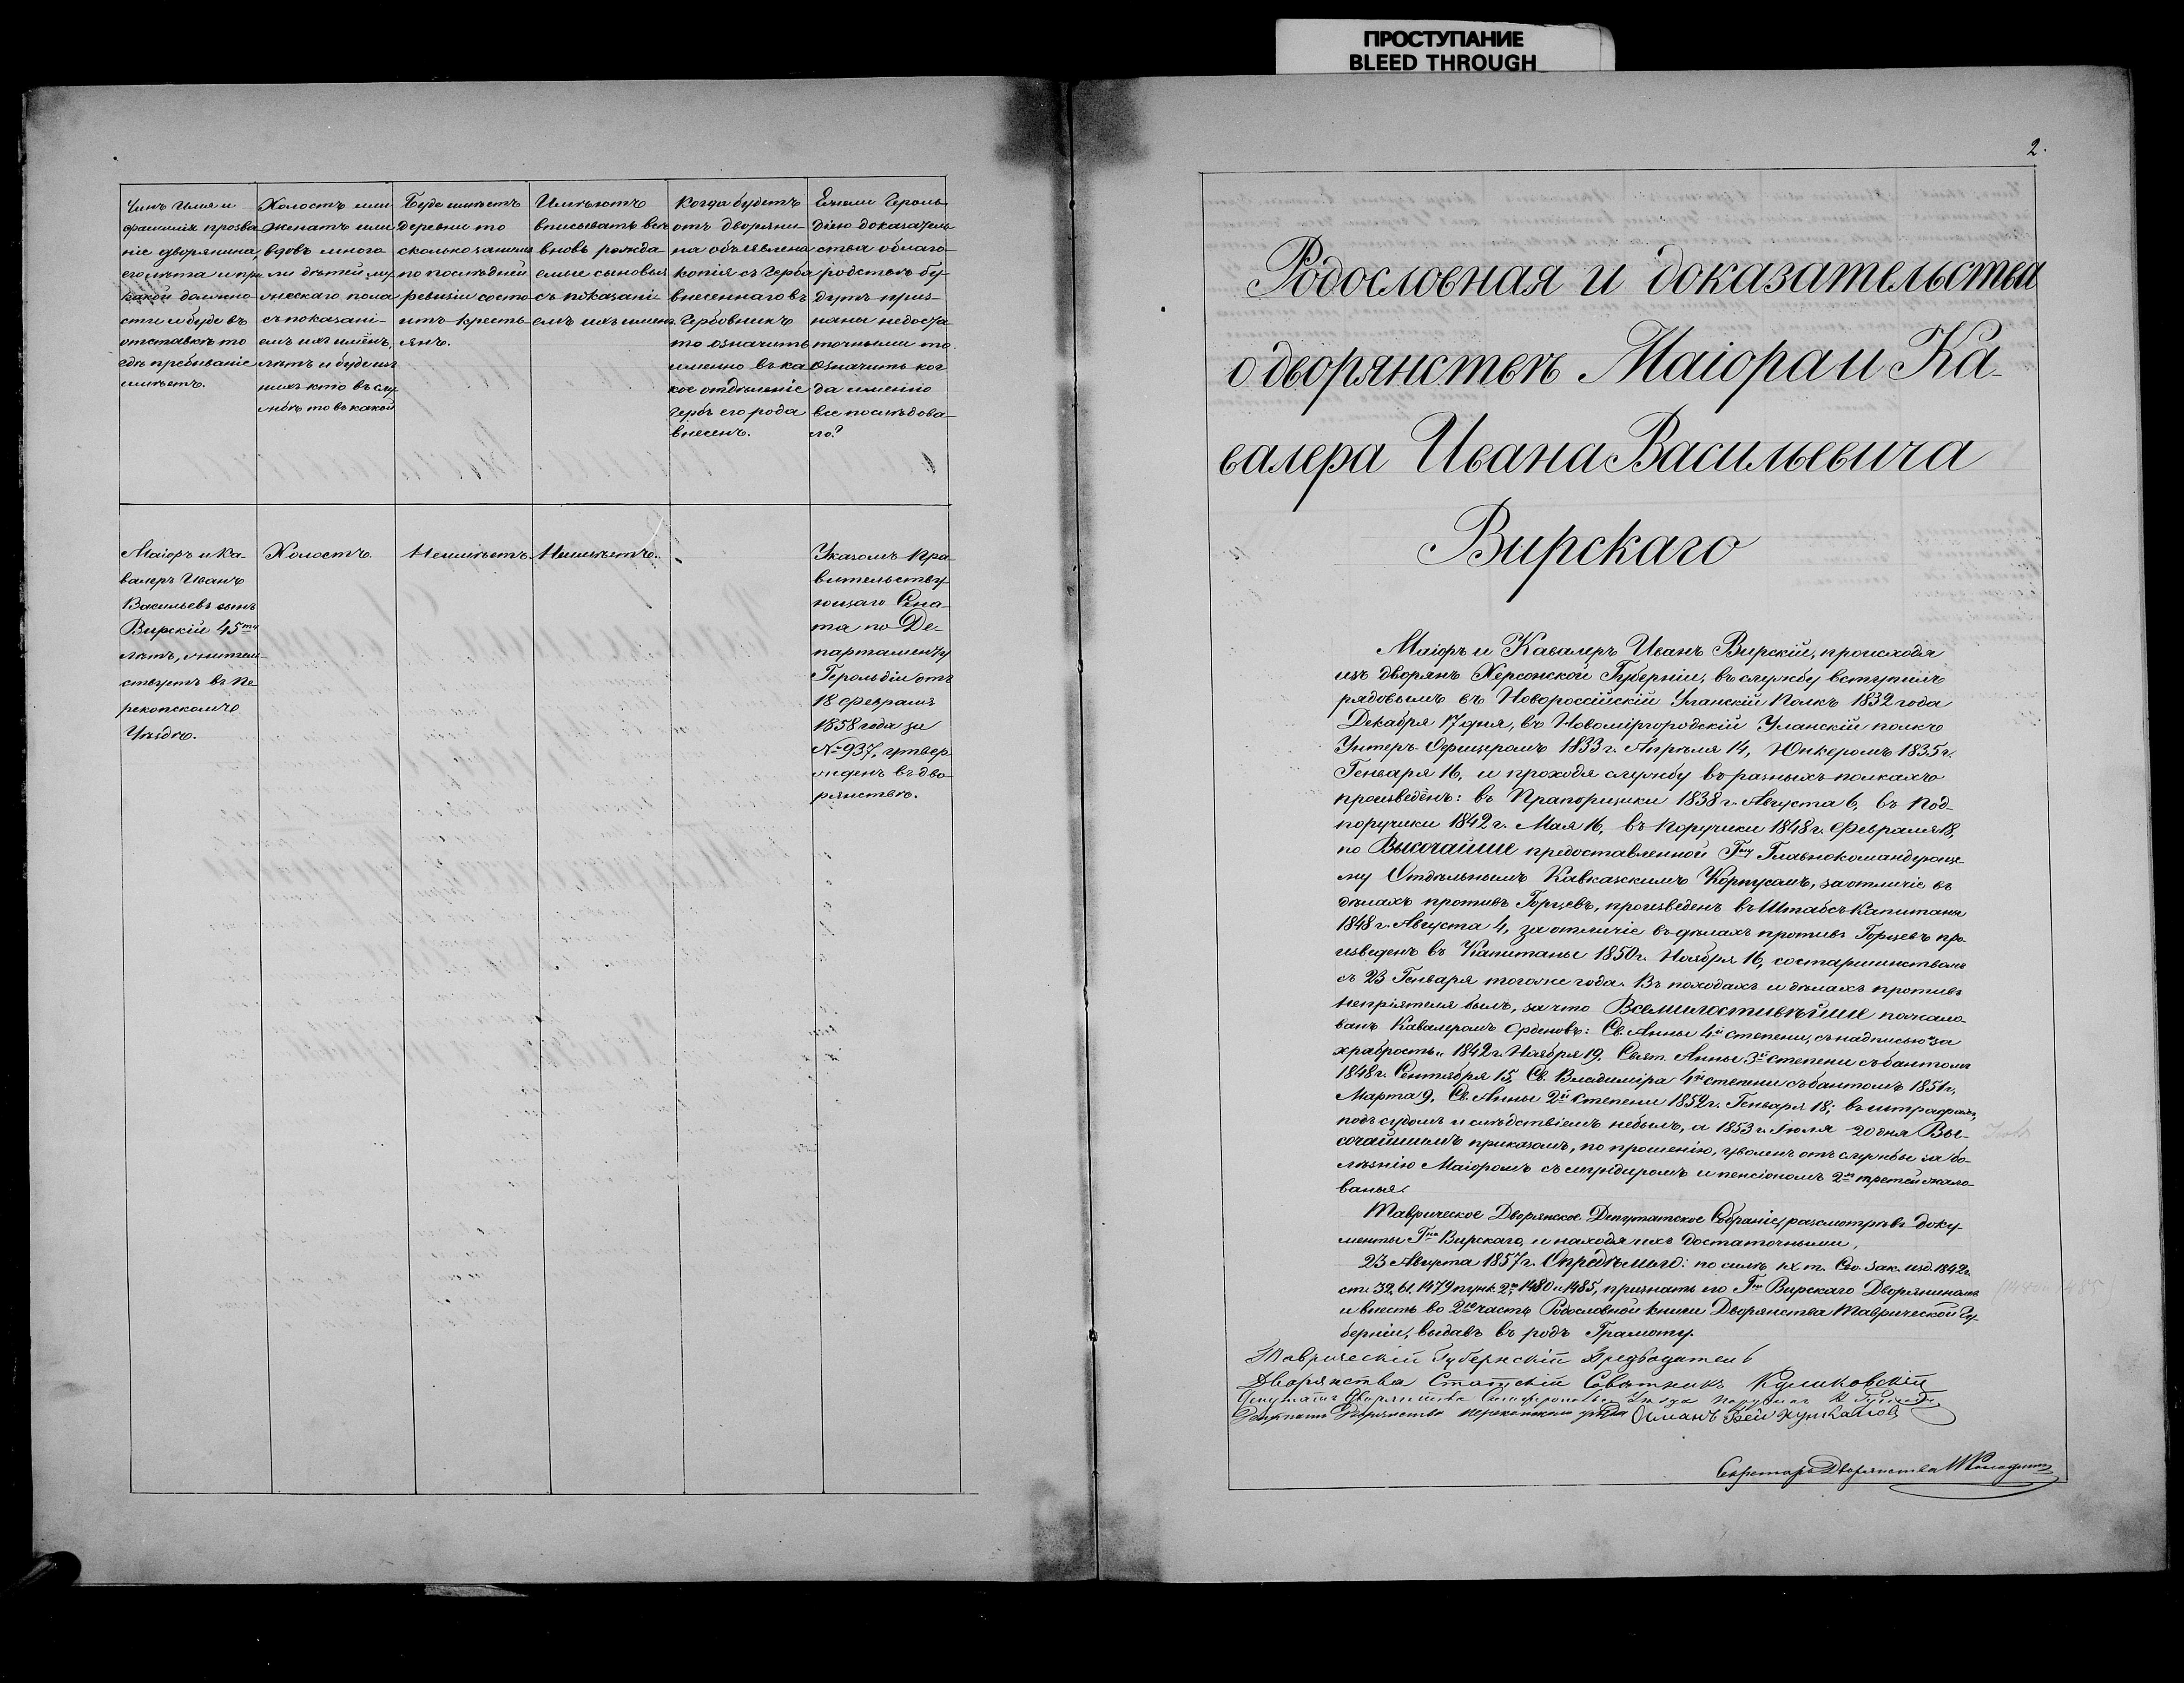 ПРОСТУПАНИЕ
BLEED THROUGH
Чинъ Имя и
фамилія прозва-
ніе дворянина,
его лѣта и при
какой должно-
сти и буде въ
отставкѣ то
гдѣ пребываніе
имѣетъ.
Холостъ или
женатъ или
вдовъ много
ли дѣтей му-
жескаго пола
съ показані-
емъ ихъ имёнъ,
лѣтъ и буде изъ
нихъ кто въ слу-
жбѣ то въ какой
Буде имѣетъ
деревни то
сколько за ними
по послѣдней
ревизіи состо-
итъ кресть-
янъ.
Имѣютъ
вписывать всѣ
вновь рожда-
емые сыновья
съ показані-
емъ ихъ имен.
Когда будетъ
отъ дворяни-
на объявлена
копія съ Герба
внесеннаго въ
Гербовникъ
то означить
именно въ ка-
кое отдѣленіе
Гербъ его рода
внесенъ.
Ежели Героль-
діею доказатель-
ства о благо-
родствѣ бу-
дутъ приз-
наны недоста-
точными то
Означить ког-
да именно
все послѣдова-
ло?
Маіоръ и Ка-
валеръ Иванъ
Васильевъ сынъ
Вирскій 45ти
лѣтъ, житель
ствуетъ въ Пе
рекопскомъ
Уѣздѣ.
Холостъ.
Неимѣетъ.
Неимѣетъ.
Указомъ Пра-
вительству-
ющаго Сена-
та по Де-
партаменту
Герольдіи отъ
18 февраля
1858 года за
№ 937, утвер-
жденъ въ дво-
рянствѣ.
2.
Родословная и доказательства
о дворянствѣ Маіора и Ка-
валера Ивана Васильевича
Вирскаго
Маіоръ и Кавалеръ Иванъ Вирскій, происходя
изъ дворянъ Херсонской Губерніи, въ службу вступилъ
рядовымъ въ Новороссійскій Уланскій Полкъ 1832 года
Декабря 17 дня, въ Новомиргородскій Уланскій полкъ
Унтеръ-Офицеромъ 1833 г. Апрѣля 14, Юнкеромъ 1835 г.
Генваря 16, и проходя службу въ разныхъ полкахъ
произведёнъ: въ Прапорщики 1838 г. Августа 6, въ Под-
поручики 1842 г. Мая 16, въ Поручики 1848 г. Февраля 18,
по Высочайше предоставленной Гну Главнокомандующе-
му Отдѣльнымъ Кавказскимъ Корпусомъ, за отличіе въ
дѣлахъ противъ Горцевъ, произведенъ въ Штабсъ-Капитаны
1848 г. Августа 4, за отличіе въ дѣлахъ противъ Горцевъ про-
изведенъ въ Капитаны 1850 г. Ноября 16, со старшинствомъ
съ 23 Генваря того же года. Въ походахъ и дѣлахъ противъ
непріятеля былъ, за что Всемилостивѣйше пожало-
ванъ Кавалеромъ Орденовъ: Св. Анны 4й степени, съ надписью „за
храбрость„ 1842 г. Ноября 19, Свят. Анны 3й степени съ бантомъ
1848 г. Сентября 15, Св. Владиміра 4й степени съ бантомъ 1851 г.
Марта 9, Св. Анны 2й степени 1852 г. Генваря 18; въ штрафахъ,
подъ судомъ и слѣдствіемъ небылъ, а 1853 г. Іюля 20 дня Вы-
сочайшимъ приказомъ, по прошенію, уволенъ отъ службы за бо-
лѣзнію Маіоромъ съ мундиромъ и пенсіономъ 2хъ третей жало-
ванья.
Таврическое Дворянское Депутатское Собраніе, разсмотрѣвъ доку-
менты Гна Вирскаго, и находя ихъ достаточными,
23 Августа 1857 г. Опредѣлило: по силѣ IX т. Св. Зак. изд. 1842 г.
ст. 32, 61, 1479 пунк. 2й, 1480 и 1485, признать его Гна Вирскаго Дворяниномъ
и внесть во 2ю часть Родословной книги Дворянства Таврической Гу-
берніи, выдавъ въ родъ Грамоту.
Таврическій Губернскій Предводатель
Дворянства Статскій Совѣтникъ
Депутатъ Дворянства Симферопольск. Уѣзда Поручикъ
Депутатъ Дворянства Перекопскаго уѣзда Османъ Бей
Секретарь Дворянства